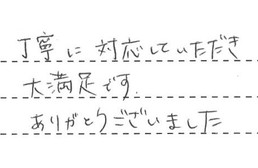 丁寧に対応していただき
大満足です.
ありがとうございました